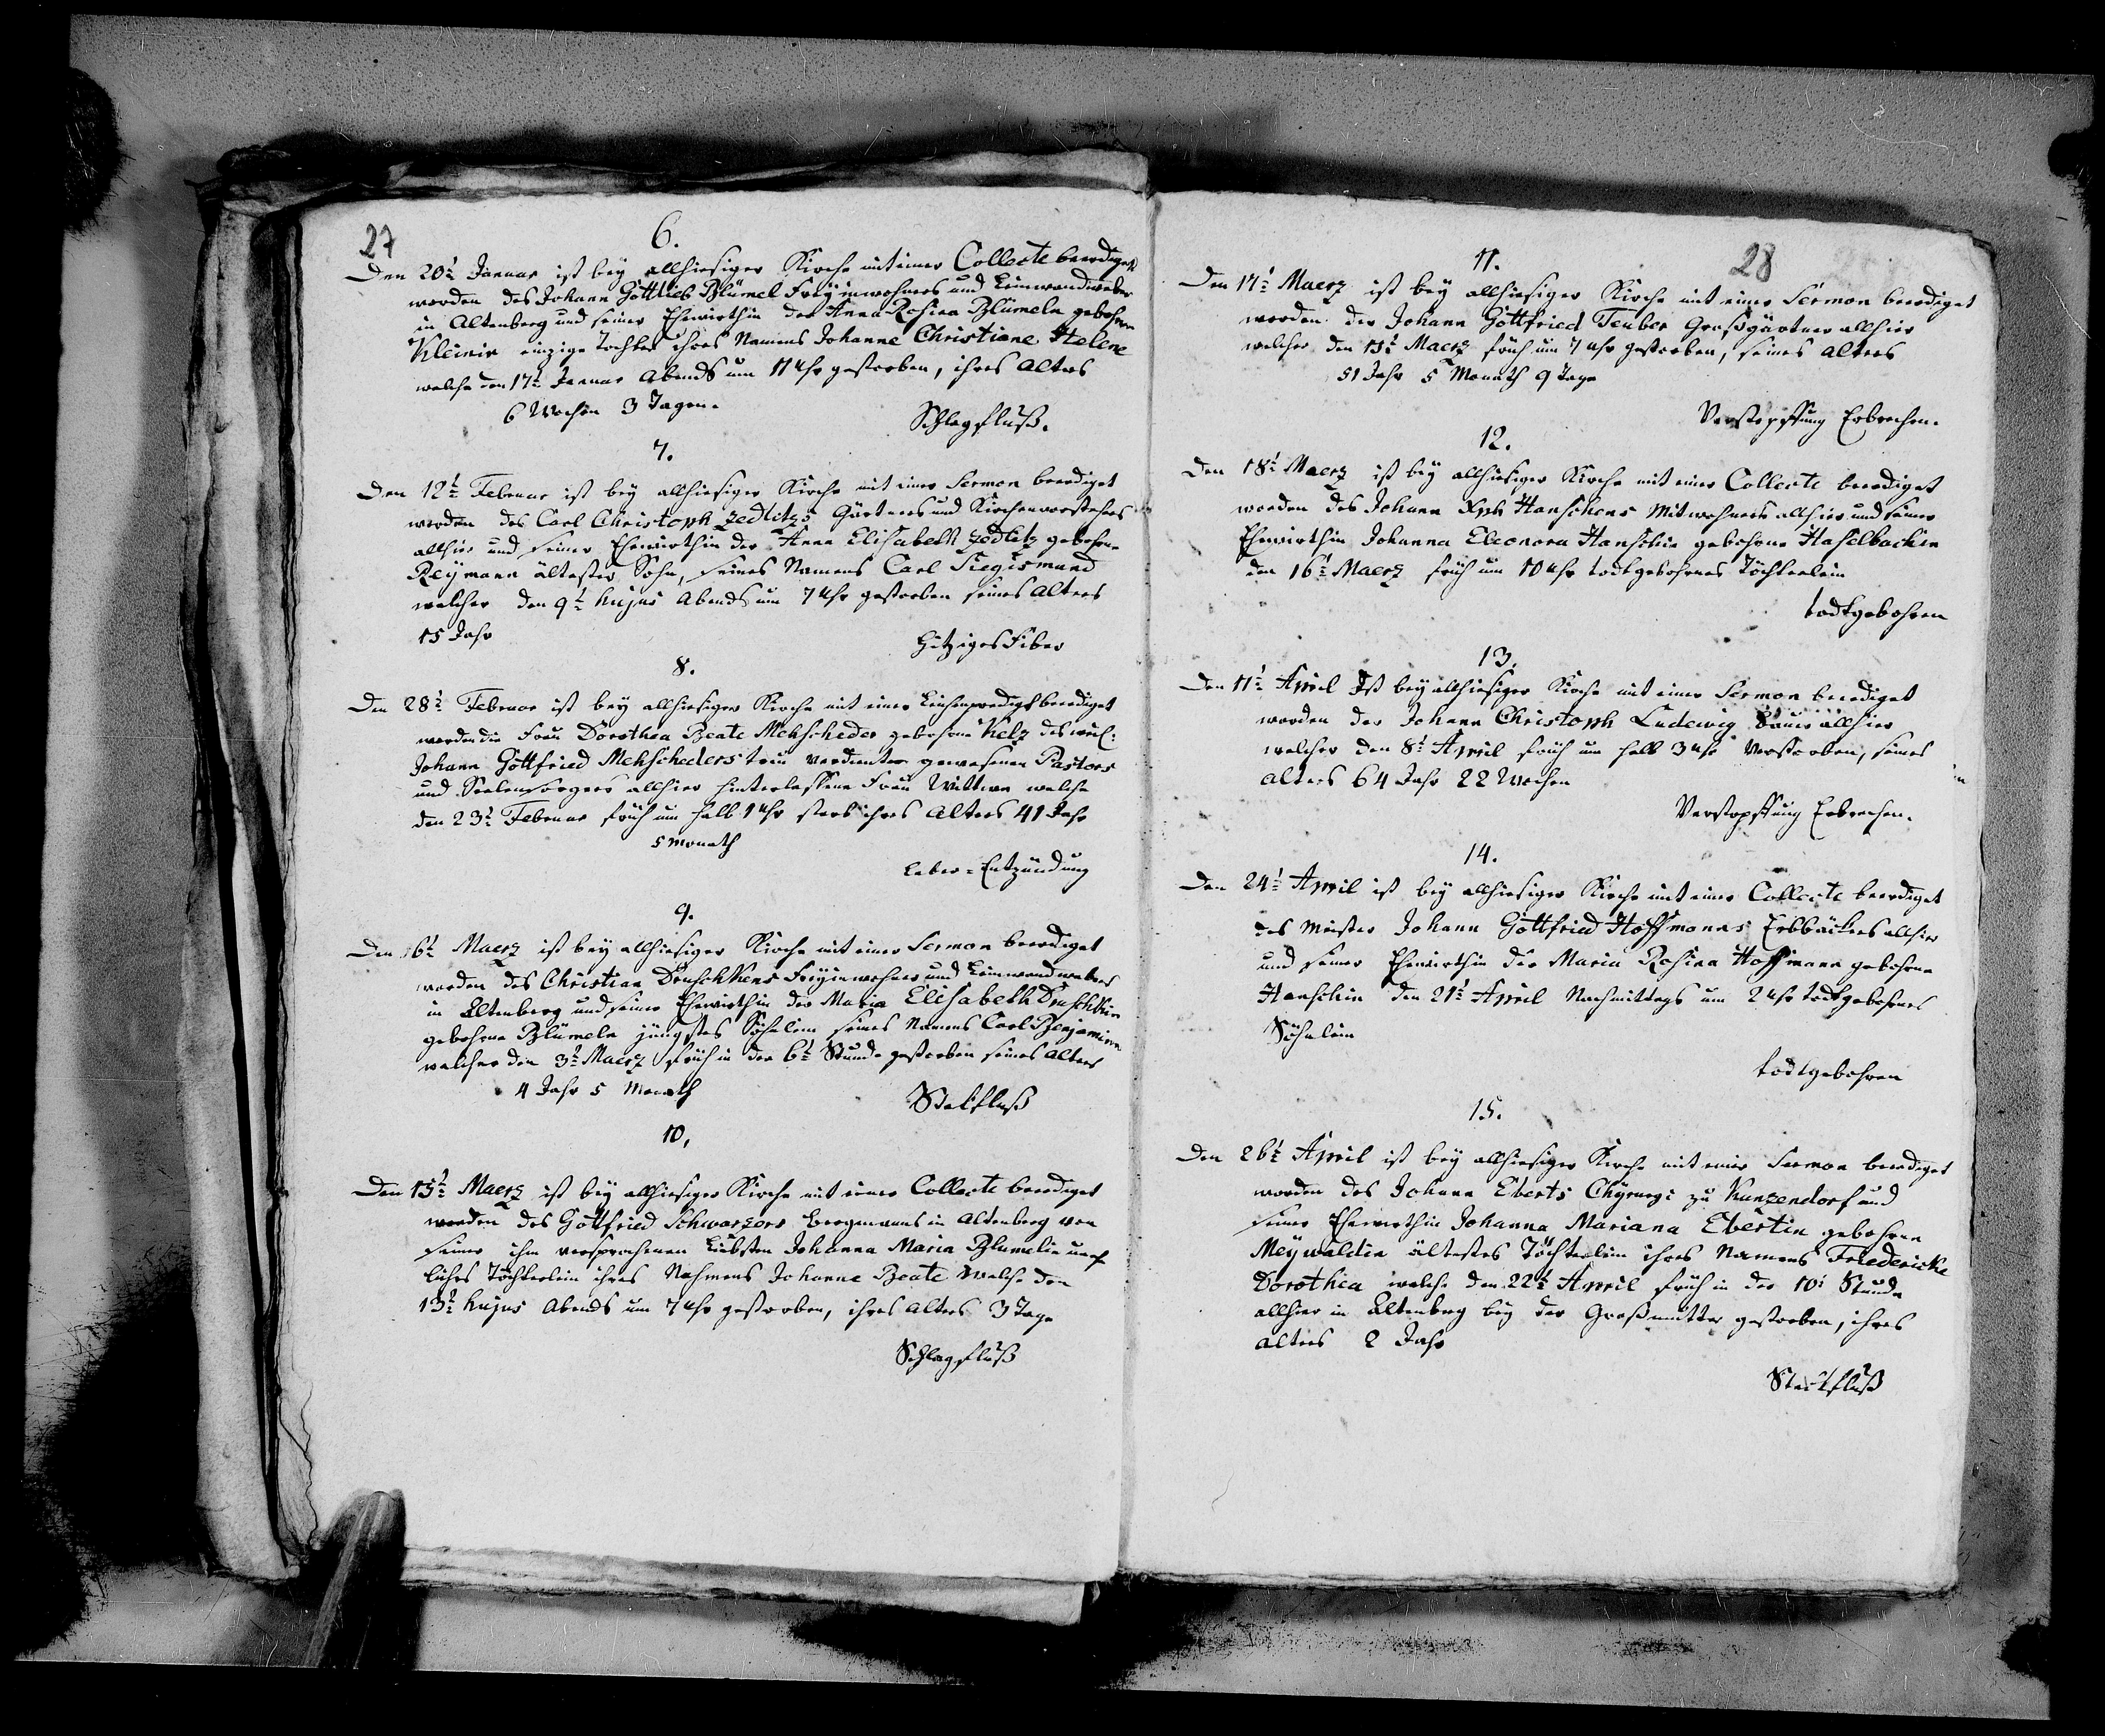 27
6.
Den 20t Januar ist bey allhiesiger Kirche mit einer Collecte beerdiget
worden des Johann Gottlieb Blümel Freyinwohners und Leinwandweber
in Altenberg und seiner Ehewirthin der Anna Rosina Blümeln gebohrne
Kleinin einzige Tochter ihres Namens Johanne Christiane Helene
welche den 17t Januar Abends um 11 Uhr gestorben, ihres Alters
6 Wochen 3 Tagen.
Schlagfluß.
7.
Den 12t Februar ist bey allhiesiger Kirche mit einer Sermon beerdiget
worden des Carl Christoph Zedlitzs Gärtners und Kirchenvorstehers
allhier und seiner Ehewirthin der Anna Elisabeth Zedlitz gebohrne
Reymann ältester Sohn, seines Namens Carl Siegismund
welcher den 9t hujus Abends um 7 Uhr gestorben seines Alters
15 Jahr
Hitziges Fiber
8.
Den 28t Februar ist bey allhiesiger Kirche mit einer Leichenpredigt beerdiget
worden die Frau Dorothea Beate Mehscheder gebohrne Kelz des weil:
Johann Gottfried Mehscheders treu verdienter gewesenen Pastors
und Seelensorgers allhier hinterlassene Frau Wittwe welche
den 23t Februar früh um halb 1 Uhr starb ihres Alters 41 Jahr
5 Monath
Leber=Entzündung
9.
Den 6t Maerz ist bey allhiesiger Kirche mit einer Sermon beerdiget
worden des Christian Druschkens Freyinwohner und Leinwandwebers
in Altenberg und seiner Ehewirthin der Maria Elisabeth Druschkin
gebohrne Blümeln jüngstes Söhnlein seines Namens Carl Benjamin
welcher den 3t Maerz früh in der 6t Stunde gestorben seines Alters
4 Jahr 5 Monath
Stekfluß
10.
Den 15t Maerz ist bey allhiesiger Kirche mit einer Collecte beerdiget
worden des Gottfried Schwarzers Bergmanns in Altenberg von
seiner ihm versprochenen Liebsten Johanna Maria Blumelin uneh
liches Töchterlein ihres Nahmens Johanne Beate welche den
13t hujus Abends um 7 Uhr gestorben, ihres Alters 3 Tage
Schlagfluß
28
11.
Den 17t Maerz ist bey allhiesiger Kirche mit einer Sermon beerdiget
worden der Johann Gottfried Teuber Großgärtner allhier
welcher den 15t Maerz früh um 7 Uhr gestorben, seines Alters
51 Jahr 5 Monath 9 Tage
Verstopffung Erbrechen.
12.
Den 18t Maerz ist bey allhiesiger Kirche mit einer Collecte beerdiget
worden des Johann Xph Hanschens Mitwohners allhier und seiner
Ehewirthin Johanna Eleonora Hanschin gebohrne Haselbachin
den 16t Maerz früh um 10 Uhr todtgebohrnes Töchterlein
todtgebohren
13.
Den 11t April Ist bey allhiesiger Kirche mit einer Sermon beerdiget
worden der Johann Christoph Ludewig Bauer allhier
welcher den 8t April früh um halb 3 Uhr verstorben, seines
Alters 64 Jahr 22 Wochen
Verstopffung Erbrechen.
14.
Den 24t April ist bey allhiesiger Kirche mit einer Collecte beerdiget
des Meister Johann Gottfried Hoffmanns Erbbäckers allhier
und seiner Ehewirthin der Maria Rosina Hoffmann gebohrne
Hanschin den 21t April Nachmittags um 2 Uhr todtgebohrnes
Söhnlein
todtgebohren
15.
Den 26t April ist bey allhiesiger Kirche mit einer Sermon beerdiget
worden des Johann Eberts Chÿrurgi zu Kunzendorf und
seiner Ehewirthin Johanna Mariana Ebertin gebohrne
Meywaldin ältestes Töchterlein ihres Namens Friedericke
Dorothea welche den 22t April früh in der 10t Stunde
allhier in Altenberg bey der Großmutter gestorben, ihres
Alters 2 Jahr
Steckfluß